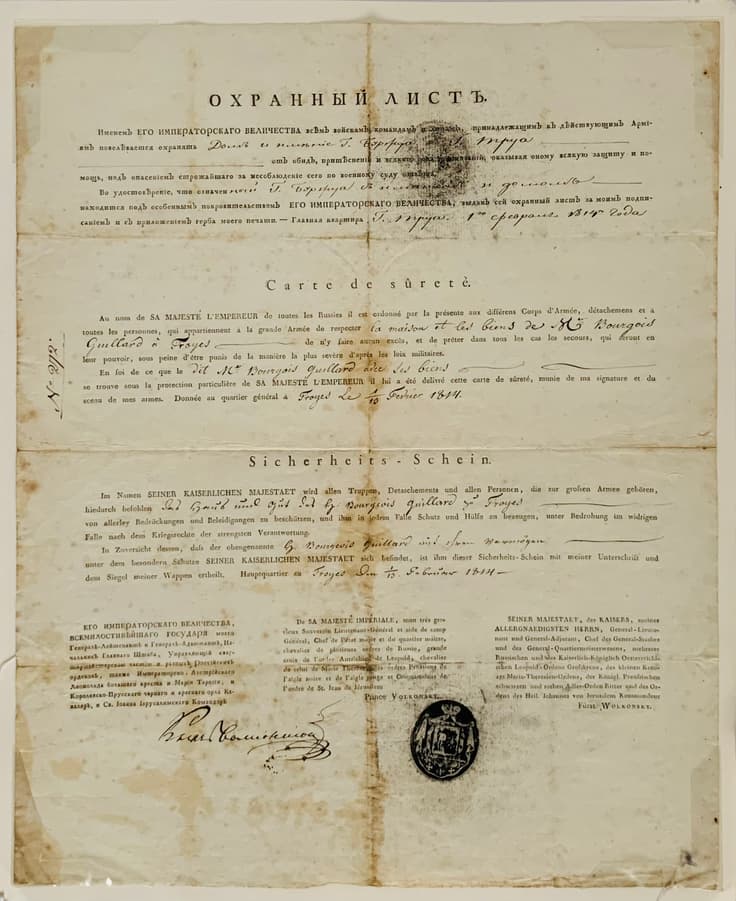 ОХРАННЫЙ ЛИСТЪ.
Именемъ ЕГО ИМПЕРАТОРСКАГО ВЕЛИЧЕСТВА всѣмъ войскамъ, командамъ и принадлежащимъ къ дѣйствующимъ Армі-
ямъ повелѣвается охранять Домъ и имѣніе Г. Г. Труа
отъ обидъ, притѣсненій и всякаго оказывая оному всякую защиту и по-
мощь, подъ опасеніемъ строжайшаго за несоблюденіе сего по военному суду
Во удостовѣреніе, что означенной Г. и домомъ
находится подъ особеннымъ покровительствомъ ЕГО ИМПЕРАТОРСКАГО ВЕЛИЧЕСТВА, выданъ сей охранный листъ за моимъ подпи-
саніемъ и съ приложеніемъ герба моего печати. — Главная квартира Г. Труа. 1го февраля 1814го года
Carte de sûretè.
Au nom de SA MAJESTÉ L'EMPEREUR de toutes les Russies il est ordonné par la présente aux différens Corps d'Armée, détachemens et à
toutes les personnes, qui appartiennent à la grande Armée de respecter la maison et les biens de Mr. Bourgois
Guillard à Troyes de n'y faire aucun excès, et de prêter dans tous les cas les secours, qui seront en
leur pouvoir, sous peine d'être punis de la manière la plus sevère d'après les loix militaires.
En foi de ce que le dit Mr. Bourgois Guillard avec ses biens
se trouve sous la protection particulière de SA MAJESTÉ L'EMPEREUR il lui a été delivré cette carte de sûreté, munie de ma signature et du
sceau de mes armes. Donnée au quartier général à Troyes Le 1/13 Fevrier 1814.
No. 272.
Sicherheits-Schein.
Im Namen SEINER KAISERLICHEN MAJESTAET wird allen Truppen, Detaschements und allen Personen, die zur großen Armee gehören,
hiedurch befohlen das Haus und Gut des H. Bourgeois Guillard zu Troyes
von allerley Bedrückungen und Beleidigungen zu beschützen, und ihm in jedem Falle Schutz und Hülfe zu bezeugen, unter Bedrohung im widrigen
Falle nach dem Kriegsrechte der strengsten Verantwortung.
In Zuversicht dessen, daß der obengenente H. Bourgeois Guillard mit Vermögen
unter dem besondern Schutze SEINER KAISERLICHEN MAJESTAET sich befindet, ist ihm dieser Sicherheits-Schein mit meiner Unterschrift und
dem Siegel meiner Wappen ertheilt. Hauptquartier zu Troyes Den 1/13. Februar 1814
ЕГО ИМПЕРАТОРСКАГО ВЕЛИЧЕСТВА,
ВСЕМИЛОСТИВѢЙШАГО ГОСУДАРЯ моего
Генералъ-Лейтенантъ и Генералъ-Адъютантъ, На-
чальникъ Главнаго Штаба, Управляющій квар-
тирмейстерскою частію и разныхъ Россійскихъ
орденовъ, также Императорско-Австрійскаго
Леопольда большаго креста и Маріи Терезіи, и
Королевско-Прусскаго чернаго и краснаго орла Ка-
валеръ, и Св. Іоанна Іерусалимскаго Командоръ
De SA MAJESTÉ IMPÉRIALE, mon très gra-
cieux Souverain Lieutenant-Général et aide de camp
Général, Chef de l'état major et du quartier maître,
chevalier de plusieurs ordres de Russie, grande
croix de l'ordre Autrichien de Leopold, chevalier
de celui de Marie Thérèse, des ordres Prussiens de
l'aigle noire et de l'aigle rouge et Commandeur de
l'ordre de St. Jean de Jérusalem
Prince VOLKONSKY.
SEINER MAJESTAET, des KAISERS, meines
ALLERGNAEDIGSTEN HERRN, General-Lieute-
nant und General-Adjutant, Chef des General-Staabes
und des General-Quartiermeisterwesens, mehrerer
Russischen und des Kaiserlich-Königlich Oesterreichi-
schen Leopold's-Ordens Großkreuz, des kleinen Kreuz-
es Maria-Theresien-Ordens, der Königl. Preußischen
schwarzen und rothen Adler-Orden Ritter und des Or-
dens des Heil. Johannes von Jerusalem Kommandeur
Fürst WOLKONSKY.